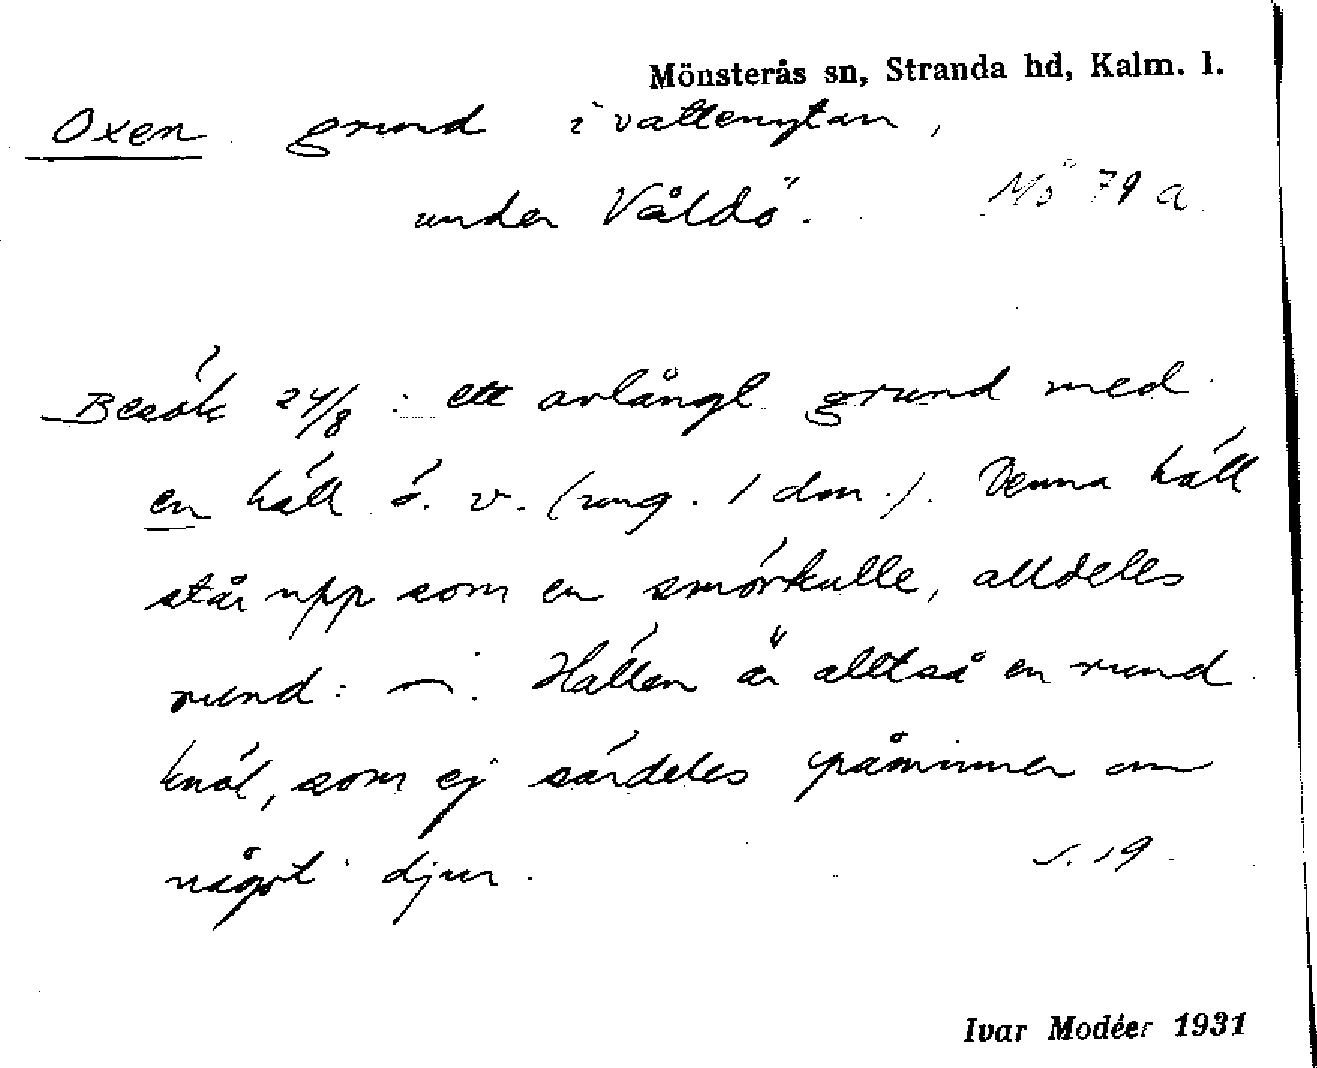 Mönsterås sn, Stranda hd, Kalm. l.
Oxen grund i vattenytan,
under Våldö.
Mö 79 a
Besök 24/8 : ett avlångt grund med
en häll ö. v. (ung. 1 dm.). Denna häll
står upp som en smörkulle, alldeles
rund: ⌒. Hällen är alltså en rund
knöl, som ej särdeles påminner om
något djur.
s. 19
Ivar Modéer 1931